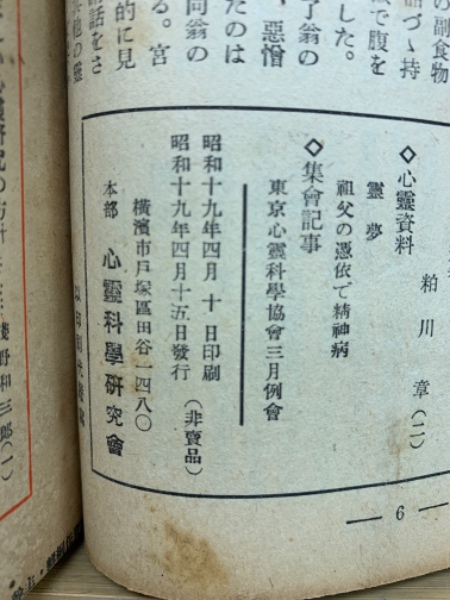 の副食物
品づゝ持
で腹を
した。
了翁の
、惡憎
たのは
同翁の
る。宮
的に見
話をさ
粕川 章(二)
◇心靈資料
靈夢
祖父の憑依で精神病
◇集會記事
東京心靈科學協會三月例會
昭和十九年四月十日印刷
昭和十九年四月十五日發行
(非賣品)
橫濱市戸塚區田谷一四八〇
本部 心靈科學研究會
— 6 —
淺野和三郎(一)